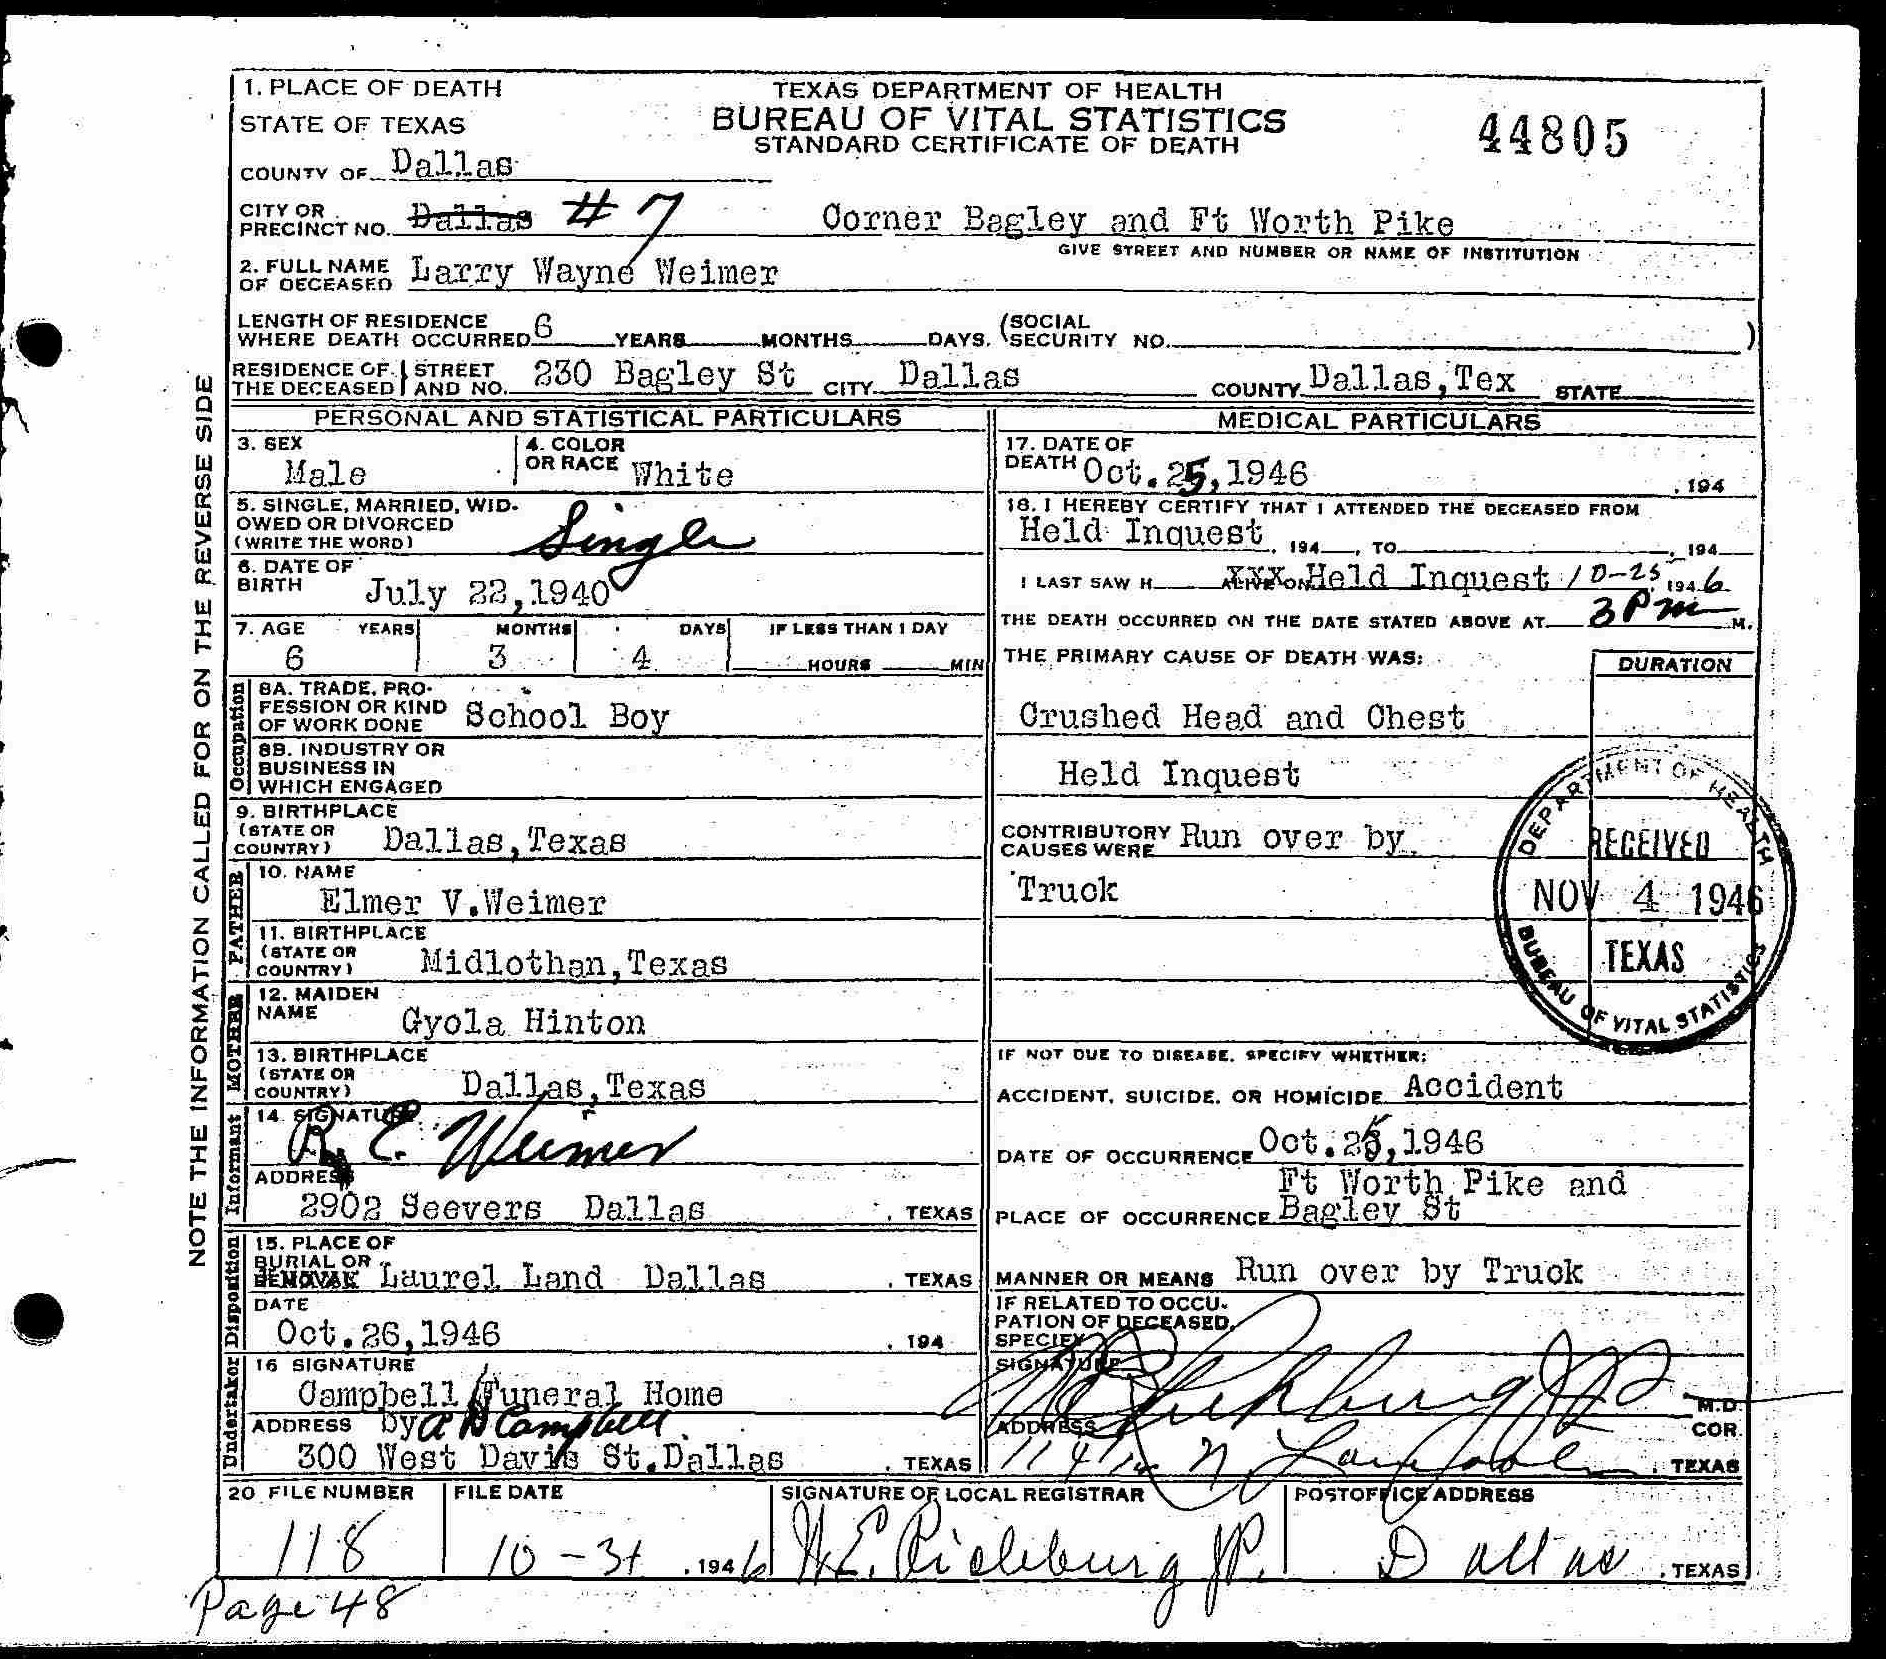 1. PLACE OF DEATH
STATE OF TEXAS
COUNTY OF Dallas
TEXAS DEPARTMENT OF HEALTH
BUREAU OF VITAL STATISTICS
STANDARD CERTIFICATE OF DEATH
44805
CITY OR PRECINCT NO. Dallas # 7 Corner Bagley and Ft Worth Pike
GIVE STREET AND NUMBER OR NAME OF INSTITUTION
2. FULL NAME OF DECEASED Larry Wayne Weimer
LENGTH OF RESIDENCE WHERE DEATH OCCURRED 6 YEARS MONTHS DAYS. (SOCIAL SECURITY NO. )
RESIDENCE OF THE DECEASED STREET AND NO. 230 Bagley St CITY Dallas COUNTY Dallas,Tex STATE
NOTE THE INFORMATION CALLED FOR ON THE REVERSE SIDE
PERSONAL AND STATISTICAL PARTICULARS
3. SEX Male
4. COLOR OR RACE White
5. SINGLE, MARRIED, WIDOWED OR DIVORCED (WRITE THE WORD) Single
6. DATE OF BIRTH July 22,1940
7. AGE YEARS MONTHS DAYS IF LESS THAN 1 DAY
6 3 4 HOURS MIN
Occupation
8A. TRADE, PROFESSION OR KIND OF WORK DONE School Boy
8B. INDUSTRY OR BUSINESS IN WHICH ENGAGED
9. BIRTHPLACE (STATE OR COUNTRY) Dallas,Texas
FATHER
10. NAME Elmer V.Weimer
11. BIRTHPLACE (STATE OR COUNTRY) Midlothan,Texas
MOTHER
12. MAIDEN NAME Gyola Hinton
13. BIRTHPLACE (STATE OR COUNTRY) Dallas,Texas
Informant
14. SIGNATURE R. E. Weimer
ADDRESS 2902 Seevers Dallas , TEXAS
Disposition
15. PLACE OF BURIAL OR REMOVAL Laurel Land Dallas , TEXAS
DATE Oct.26,1946 , 194
Undertaker
16 SIGNATURE Campbell Funeral Home
by A D Campbell
ADDRESS 300 West Davis St.Dallas , TEXAS
MEDICAL PARTICULARS
17. DATE OF DEATH Oct.25,1946 , 194
18. I HEREBY CERTIFY THAT I ATTENDED THE DECEASED FROM
Held Inquest , 194 , TO , 194
I LAST SAW H XXX ALIVE ON Held Inquest 10-25 1946
THE DEATH OCCURRED ON THE DATE STATED ABOVE AT 3 Pm M.
THE PRIMARY CAUSE OF DEATH WAS: DURATION
Crushed Head and Chest
Held Inquest
CONTRIBUTORY CAUSES WERE Run over by
Truck
DEPARTMENT OF HEALTH
RECEIVED
NOV 4 1946
TEXAS
BUREAU OF VITAL STATISTICS
IF NOT DUE TO DISEASE, SPECIFY WHETHER:
ACCIDENT, SUICIDE, OR HOMICIDE Accident
DATE OF OCCURRENCE Oct.25,1946
PLACE OF OCCURRENCE Ft Worth Pike and
Bagley St
MANNER OR MEANS Run over by Truck
IF RELATED TO OCCUPATION OF DECEASED, SPECIFY
SIGNATURE W E Richburg JP M.D.
COR.
ADDRESS N , TEXAS
20 FILE NUMBER FILE DATE SIGNATURE OF LOCAL REGISTRAR POSTOFFICE ADDRESS
118 10-31 , 1946 W.E. Richburg JP. Dallas , TEXAS
Page 48